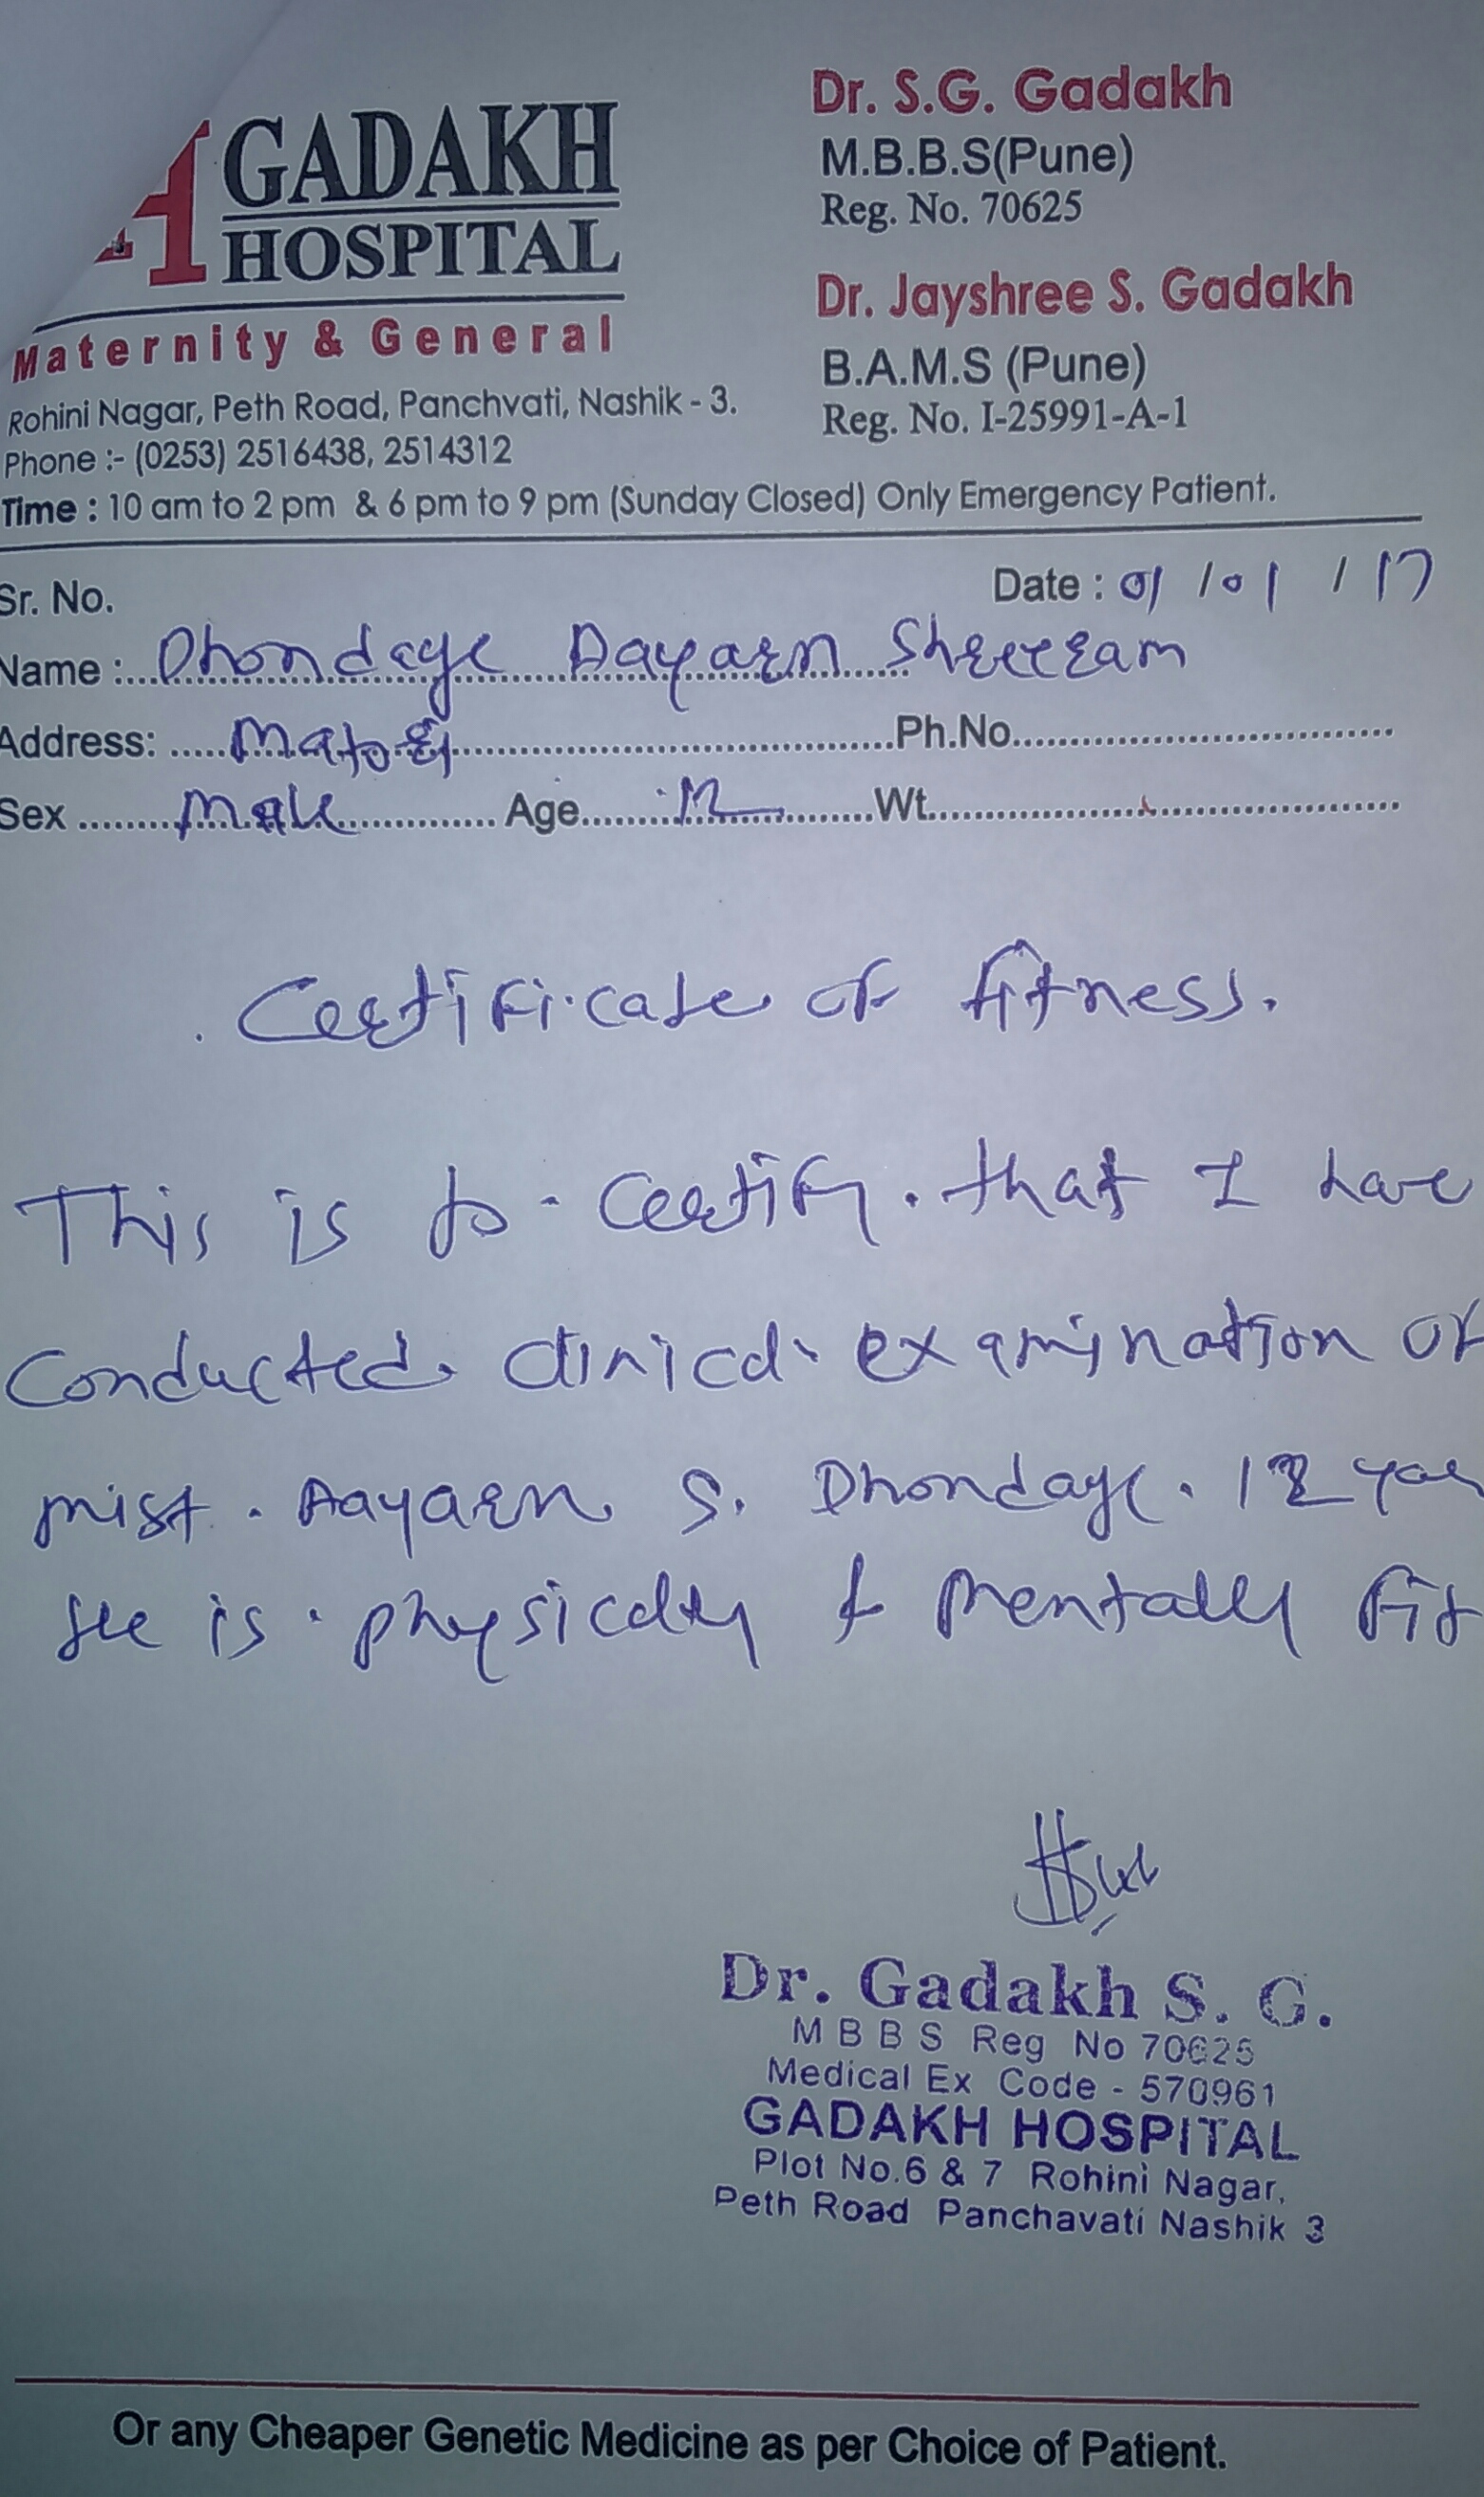 GADAKH
HOSPITAL
Maternity & General
Rohini Nagar, Peth Road, Panchvati, Nashik - 3.
Phone :- (0253) 2516438, 2514312
Time : 10 am to 2 pm & 6 pm to 9 pm (Sunday Closed) Only Emergency Patient.
Dr. S.G. Gadakh
M.B.B.S(Pune)
Reg. No. 70625
Dr. Jayshree S. Gadakh
B.A.M.S (Pune)
Reg. No. I-25991-A-1
Sr. No. Date : 01/01/17
Name : Dhondage Aayarn Shreeram
Address: Ph.No.
Sex Male Age 12 Wt.
Certificate of fitness.
This is to certify that I have
conducted clinical examination of
mist. Aayarn S. Dhondage. 12 year
is physically & mentally fit
Dr. Gadakh S. G.
M B B S Reg No 70625
Medical Ex Code - 570961
GADAKH HOSPITAL
Plot No.6 & 7 Rohini Nagar,
Peth Road Panchavati Nashik 3
Or any Cheaper Genetic Medicine as per Choice of Patient.